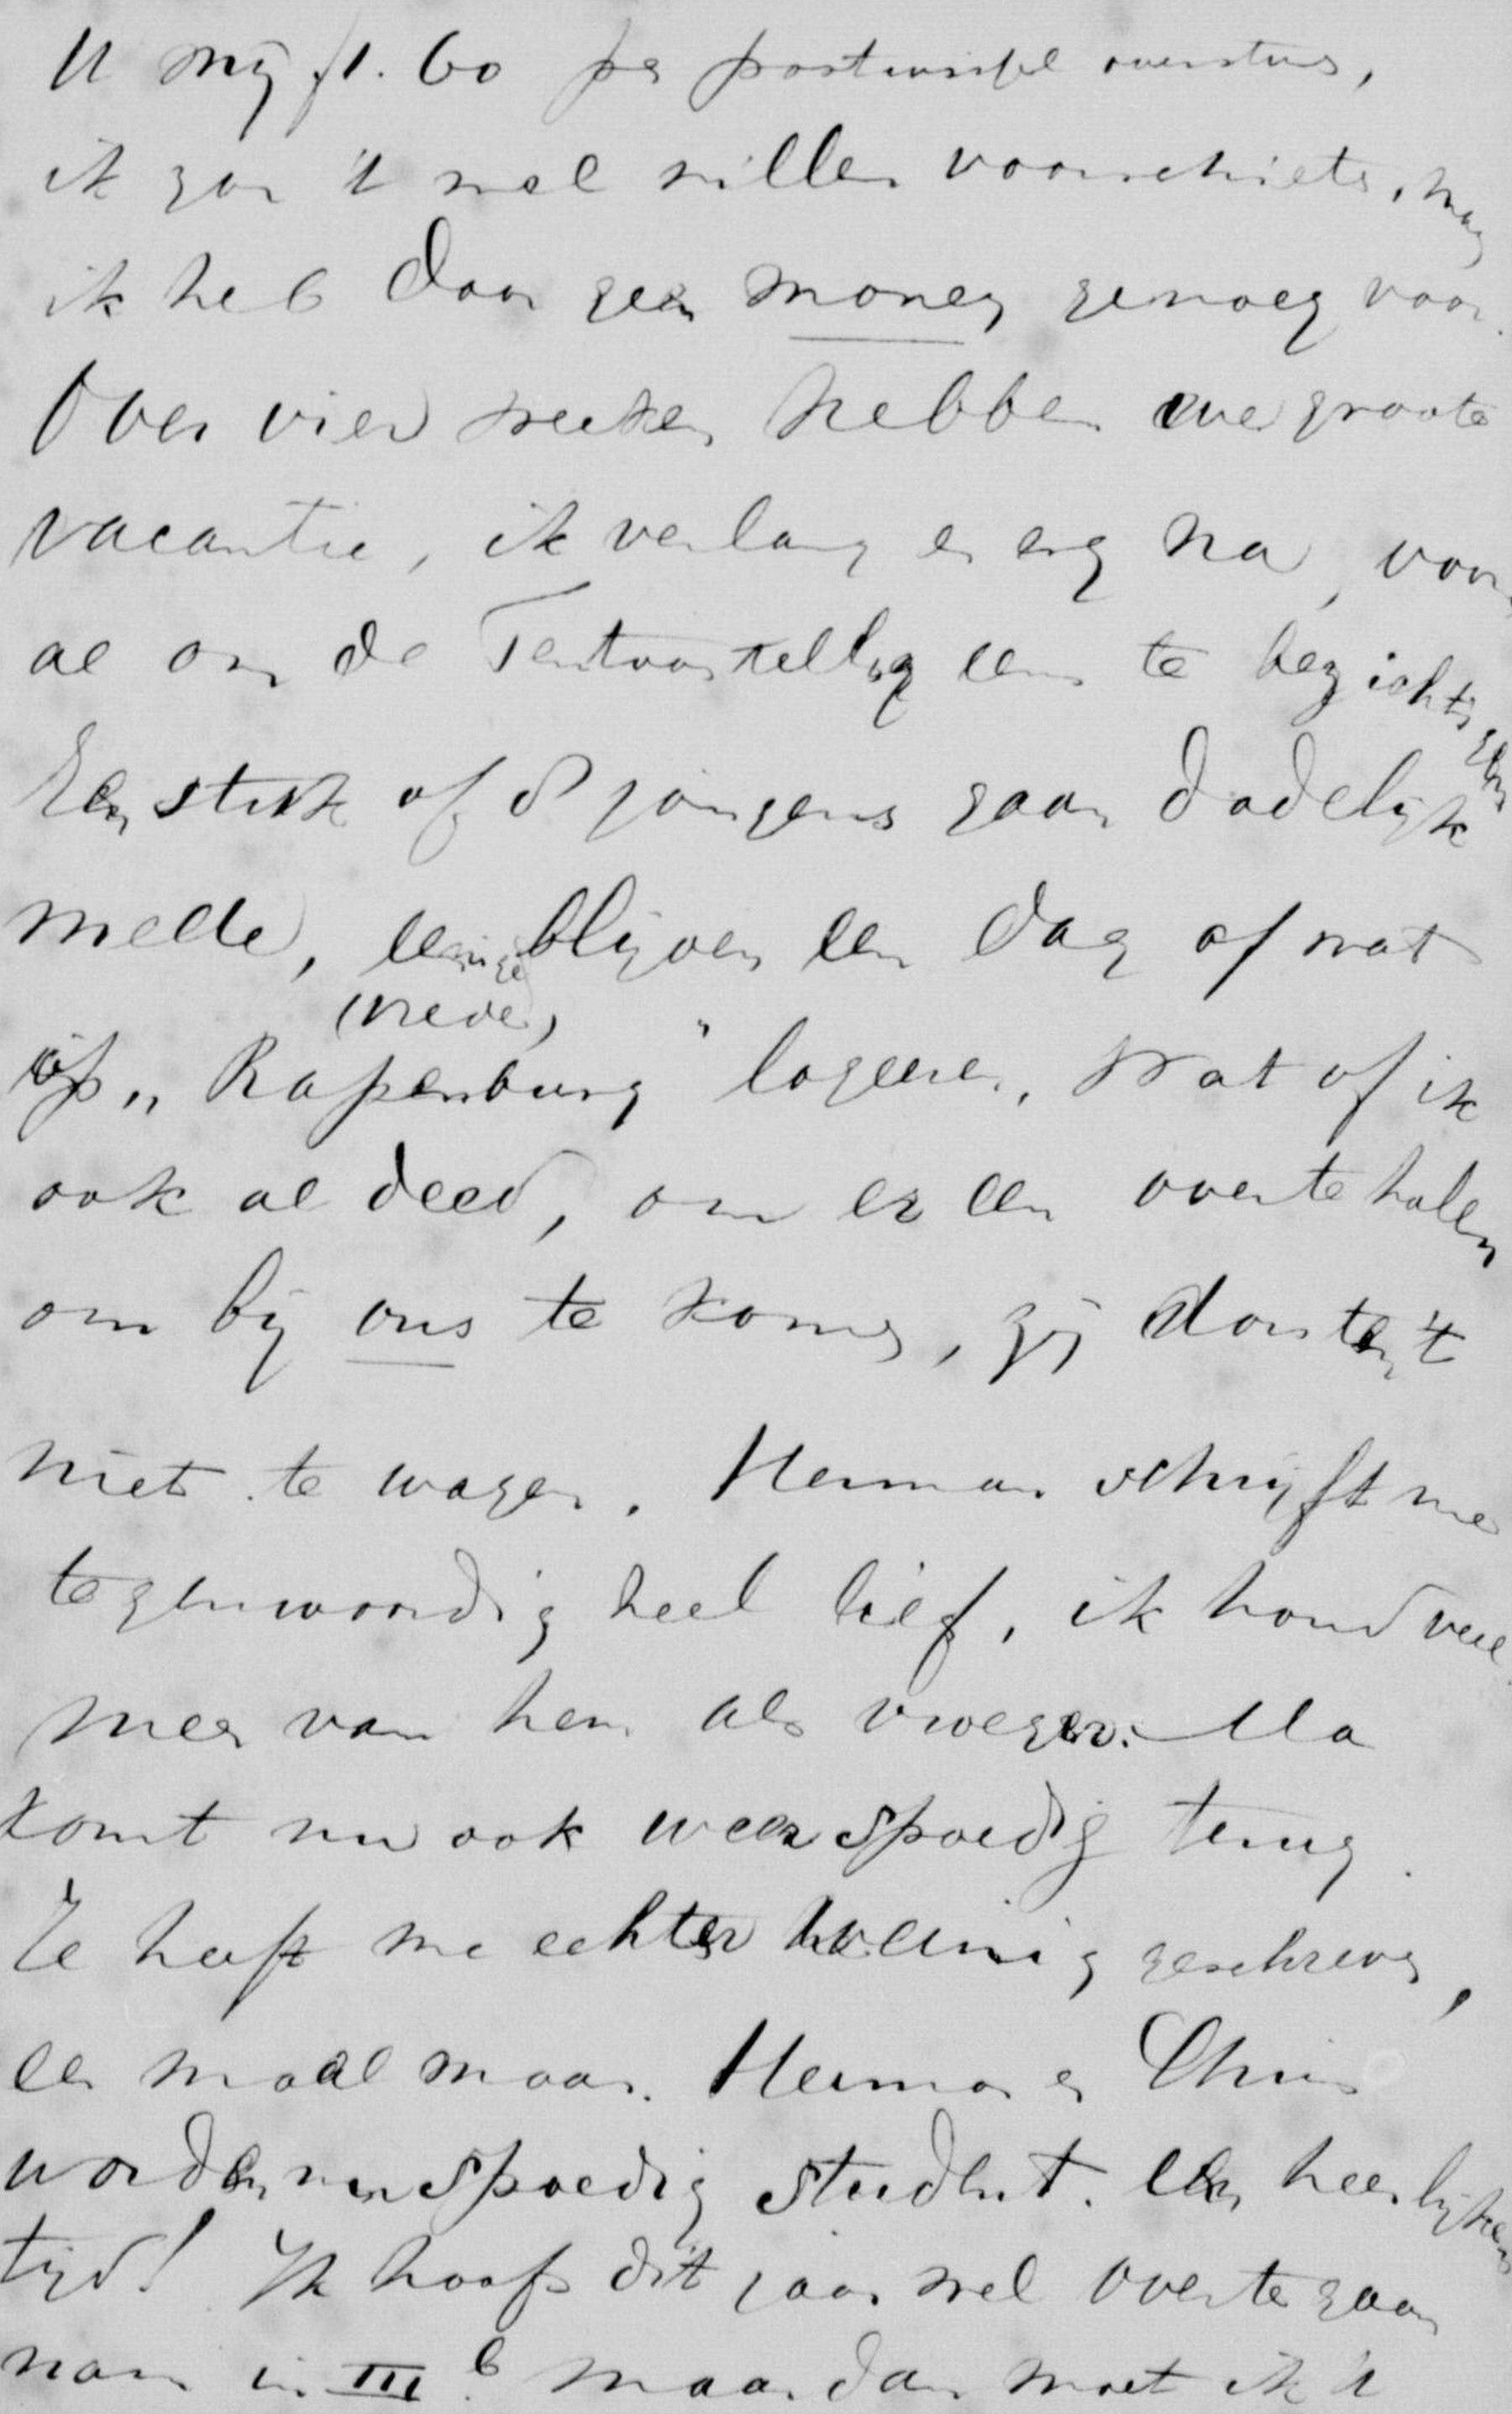 U mij fl. 60 per postwissel overstuur,
ik zou 't wel willen voorschieten, maar
ik heb daar geen money genoeg voor.
Over vier weeken hebben we groote
vacantie, ik verlang er erg na, voor
al om de Tentoonstelling eens te bezichtigen
Een stuk of 8 jongens gaan dadelijk
mede, eenige blijven een dag of wat
(mede)
op „Rapenburg" logeeren, wat of ik
ook al deed, om er een overtehalen
om bij ons te komen, zij dorsten 't
niet te wagen. Herman schrijft me
tegenwoordig heel lief, ik houd veel
meer van hem als vroeger. Ma
komt nu ook weer spoedig terug.
Ze heeft me echter weinig geschreven,
een maal maar. Herman en Chris
worden nu spoedig student. Een heerlijken
tijd! Ik hoop dit jaar wel overtegaan
naar in III b maar dan moet ik 't